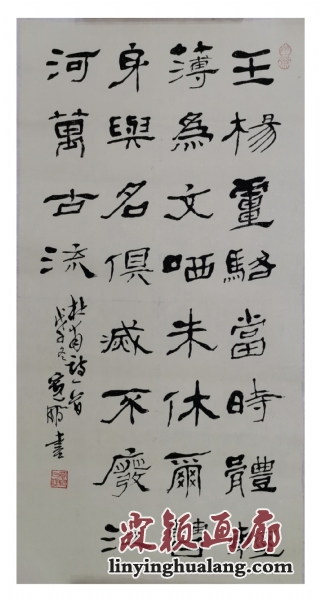 王楊盧駱當時體輕
薄為文哂未休爾曹
身與名俱滅不廢江
河萬古流
杜甫詩一首
戊子冬寬書
霖颖画廊
linyinghualang.com